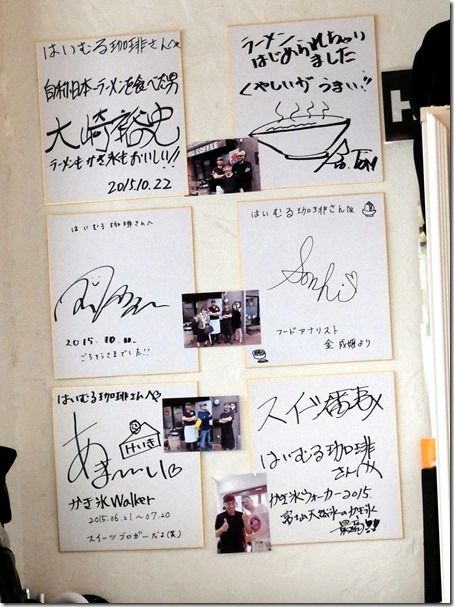 はいむる珈琲さんへ
自称日本一ラーメンを食べた男
大崎裕史
ラーメンもかき氷もおいしい!!
2015.10.22
ラーメン
はじめられちゃい
ました
くやしいがうまい!!
COFFEE
はいむる珈琲さんへ
2015.10.11.
ごちそうさまでした!!
はいむる珈琲さんへ
フードアナリスト
より
はいむる珈琲さんへ
あま〜〜い
けいき
かき氷Walker
2015.06.21〜07.20
スイーツブロガーだよ(笑)
スイーツ番長
はいむる珈琲
さんへ
かき氷ウォーカー2015.
富士山天然氷のかき氷
最高!!!
H